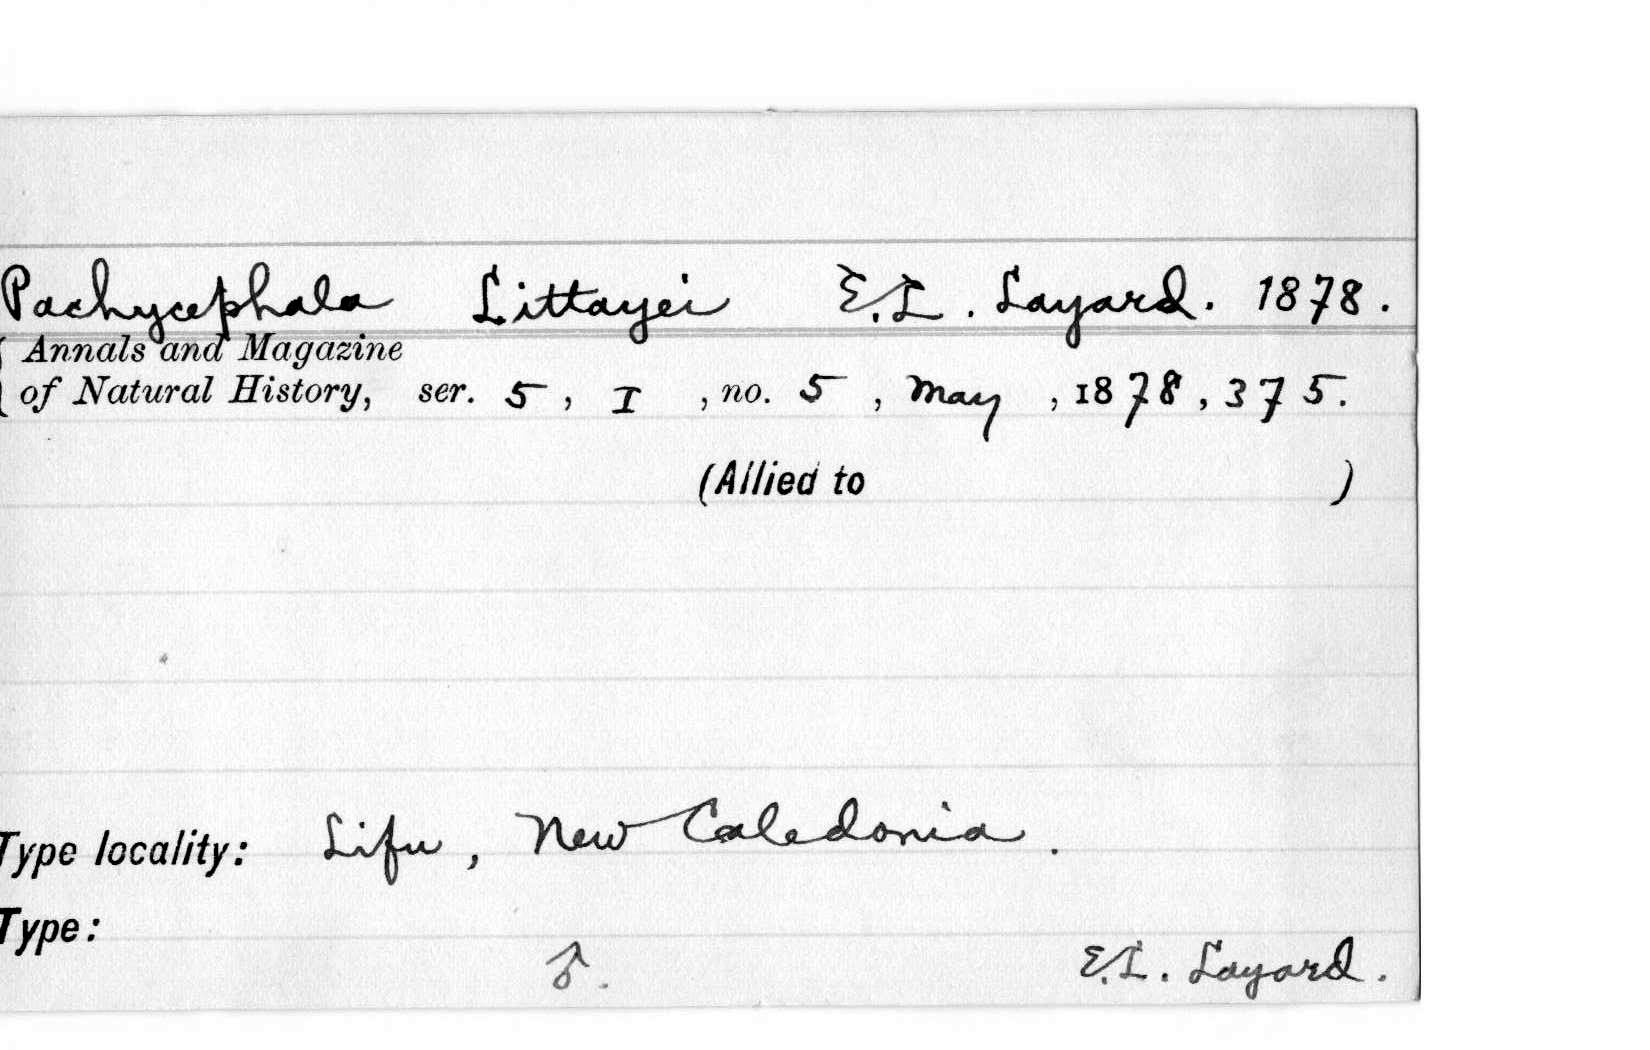 Pachycephala Littayei E.L. Layard. 1878.
Annals and Magazine
of Natural History, ser. 5, I, no. 5, May, 1878, 375.
(Allied to )
Type locality: Lifu, New Caledonia.
Type:
♂. E.L. Layard.